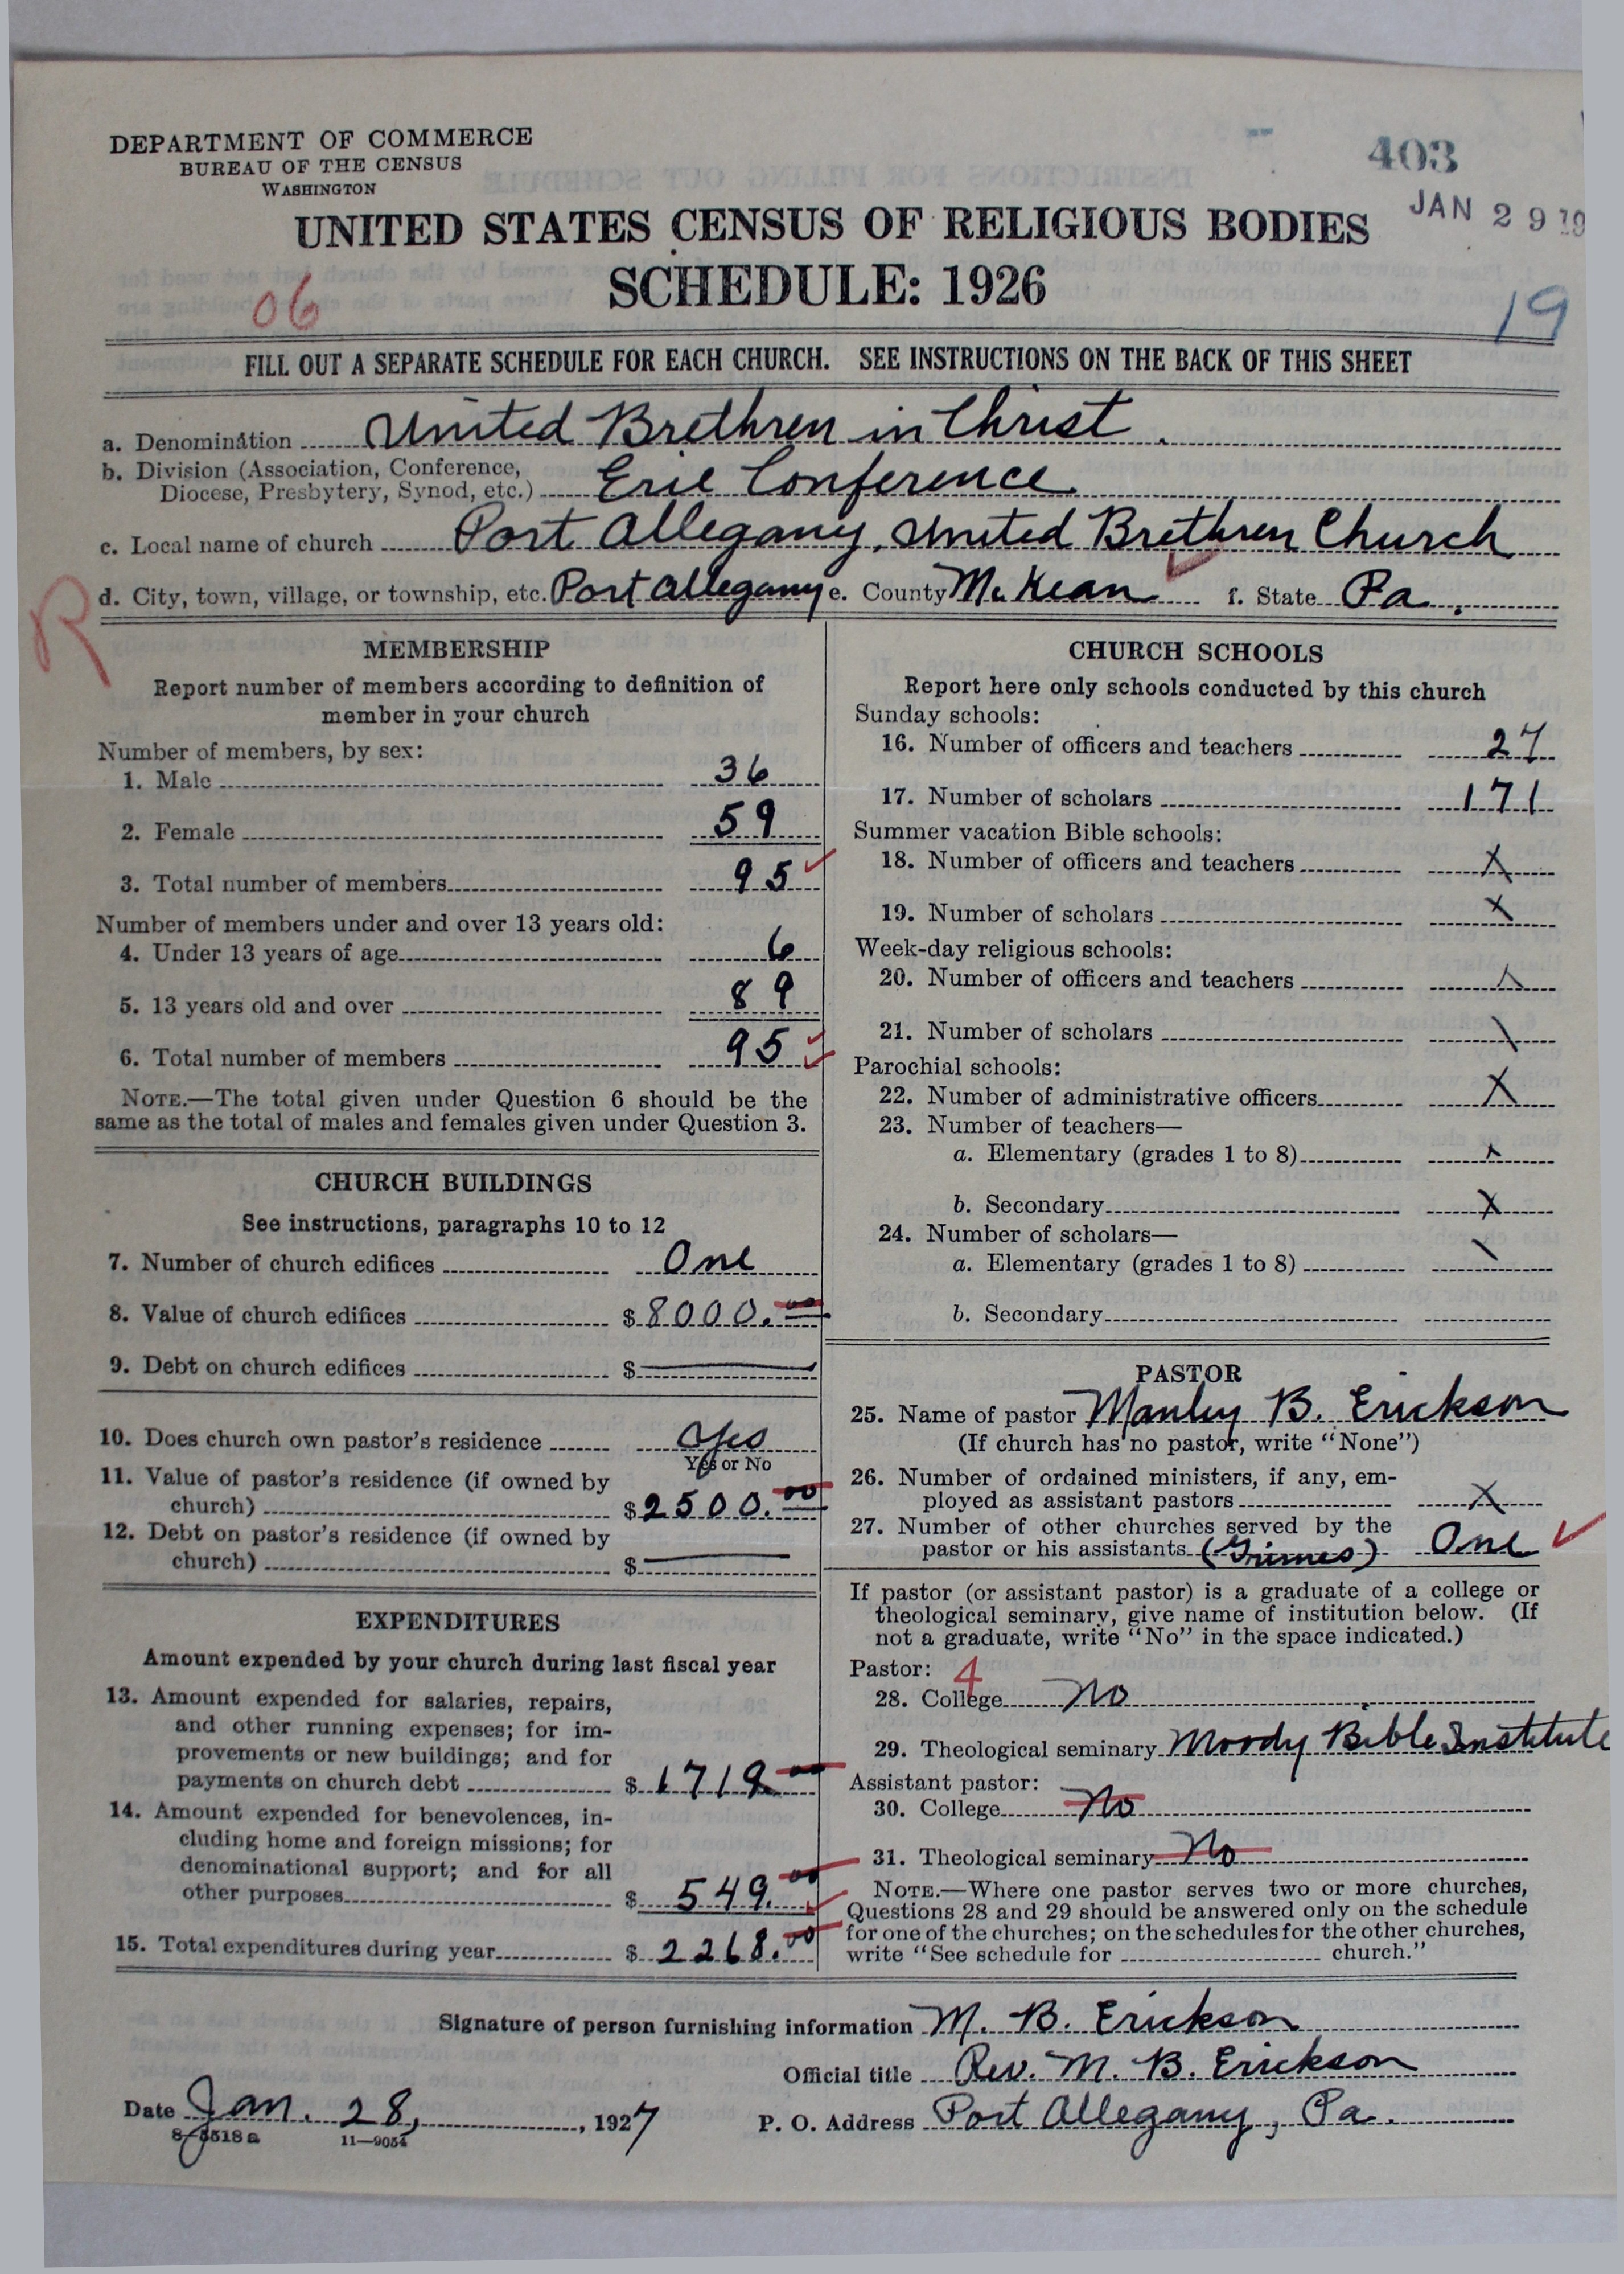 DEPARTMENT OF COMMERCE
BUREAU OF THE CENSUS
WASHINGTON
403
JAN 29 19
UNITED STATES CENSUS OF RELIGIOUS BODIES
SCHEDULE: 1926
06
19
FILL OUT A SEPARATE SCHEDULE FOR EACH CHURCH. SEE INSTRUCTIONS ON THE BACK OF THIS SHEET
a. Denomination United Brethren in Christ.
b. Division (Association, Conference,
Diocese, Presbytery, Synod, etc.) Erie Conference
c. Local name of church Port Allegany, United Brethren Church
d. City, town, village, or township, etc. Port Allegany e. County McKean f. State Pa.
R
MEMBERSHIP
Report number of members according to definition of
member in your church
Number of members, by sex:
1. Male 36
2. Female 59
3. Total number of members 95
Number of members under and over 13 years old:
4. Under 13 years of age 6
5. 13 years old and over 89
6. Total number of members 95
NOTE.—The total given under Question 6 should be the
same as the total of males and females given under Question 3.
CHURCH BUILDINGS
See instructions, paragraphs 10 to 12
7. Number of church edifices One
8. Value of church edifices $8000.00
9. Debt on church edifices $
10. Does church own pastor's residence Yes
Yes or No
11. Value of pastor's residence (if owned by
church) $2500.00
12. Debt on pastor's residence (if owned by
church) $
EXPENDITURES
Amount expended by your church during last fiscal year
13. Amount expended for salaries, repairs,
and other running expenses; for im-
provements or new buildings; and for
payments on church debt $1719 00
14. Amount expended for benevolences, in-
cluding home and foreign missions; for
denominational support; and for all
other purposes $549.00
15. Total expenditures during year $2268.00
CHURCH SCHOOLS
Report here only schools conducted by this church
Sunday schools:
16. Number of officers and teachers 27
17. Number of scholars 171
Summer vacation Bible schools:
18. Number of officers and teachers X
19. Number of scholars X
Week-day religious schools:
20. Number of officers and teachers X
21. Number of scholars \
Parochial schools:
22. Number of administrative officers X
23. Number of teachers—
a. Elementary (grades 1 to 8) X
b. Secondary X
24. Number of scholars—
a. Elementary (grades 1 to 8) \
b. Secondary
PASTOR
25. Name of pastor Manley B. Erickson
(If church has no pastor, write "None")
26. Number of ordained ministers, if any, em-
ployed as assistant pastors X
27. Number of other churches served by the
pastor or his assistants (Grimes) One
If pastor (or assistant pastor) is a graduate of a college or
theological seminary, give name of institution below. (If
not a graduate, write "No" in the space indicated.)
Pastor: 4
28. College No
29. Theological seminary Moody Bible Institute
Assistant pastor:
30. College No
31. Theological seminary No
NOTE.—Where one pastor serves two or more churches,
Questions 28 and 29 should be answered only on the schedule
for one of the churches; on the schedules for the other churches,
write "See schedule for church."
Signature of person furnishing information M. B. Erickson
Official title Rev. M. B. Erickson
Date Jan. 28, 1927 P. O. Address Port Allegany, Pa.
8-5518a 11—9054